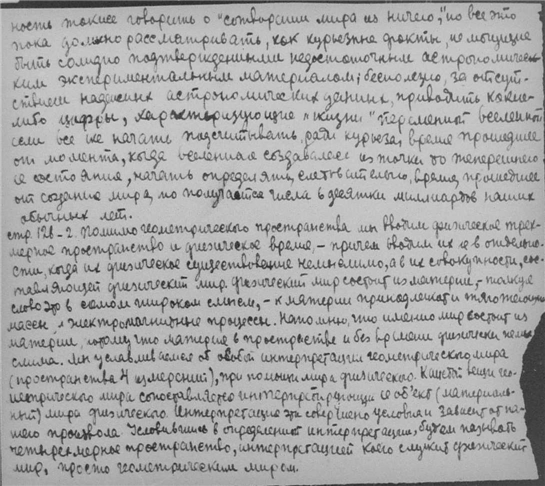 ность также говорить о "сотворении мира из ничего", но все это
пока должно рассматривать, как курьезные факты, не могущие
быть солидно подтвержденными недостаточным астрономичес-
ким экспериментальным материалом; бесполезно, за отсут-
ствием надежных астрономических данных, приводить какие-
либо цифры, характеризующие "жизни" переменной вселенной
если все же начать подсчитывать, ради курьеза, время прошедшее
от момента, когда вселенная создавалась из точки до теперешнего
ее состояния, начать определять, следовательно, время, прошедшее
от создания мира, то получаются числа в десятки миллиардов наших
обычных лет.
стр. 128-2. Помимо геометрического пространства мы вводим физическое трех-
мерное пространство и физическое время, - причем вводим их не в отдельно-
сти, когда их физическое существование немыслимо, а в их совокупности, сос-
тавляющей физический мир. Физический мир состоит из материи, - толкуя
слово это в самом широком смысле, - к материи принадлежат и тяготеющие
массы, и электромагнитные процессы. Напомню, что именно мир состоит из
материи, потому что материя в пространстве и без времени физически немы-
слима. Мы уславливаемся об особой интерпретации геометрического мира
(пространства 4 измерений), при помощи мира физического. Каждой вещи гео-
метрического мира сопоставляется интерпретирующий ее объект (материаль-
ный) мира физического. Интерпретация эта совершенно условна и зависит от на-
шего произвола. Условившись в определении интерпретации, будем называть
четырехмерное пространство, интерпретацией коего служит физический
мир, просто геометрическим миром.